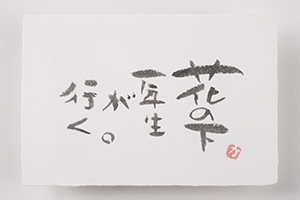 花の下
一年生
が
行く。